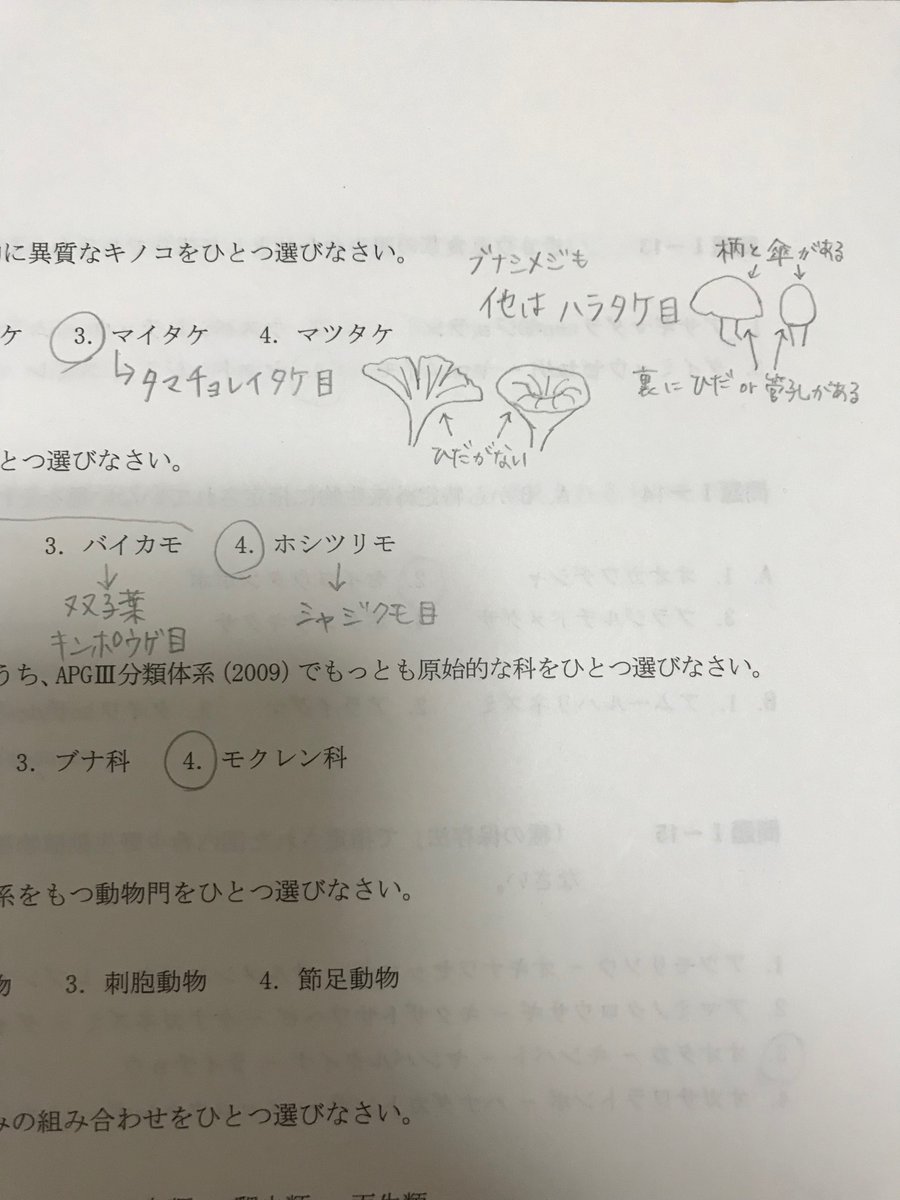 に異質なキノコをひとつ選びなさい。
ブナシメジも
他は ハラタケ目
柄と傘がある
ケ 3. マイタケ 4. マツタケ
タマチョレイタケ目
裏にひだ or 管孔がある
ひだがない
とつ選びなさい。
3. バイカモ 4. ホシツリモ
双子葉
キンポウゲ目
シャジクモ目
うち、APGⅢ分類体系(2009)でもっとも原始的な科をひとつ選びなさい。
3. ブナ科 4. モクレン科
系をもつ動物門をひとつ選びなさい。
物 3. 刺胞動物 4. 節足動物
みの組み合わせをひとつ選びなさい。